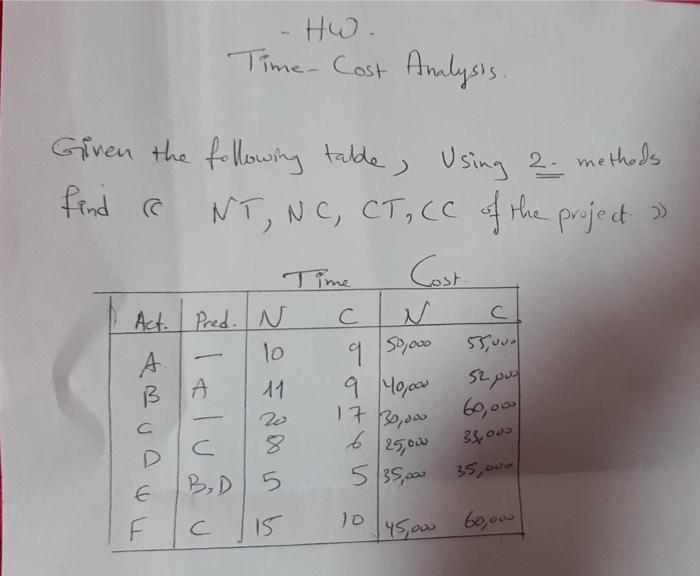 - HW -
Time - Cost Analysis.
Given the following table, Using 2 - methods
find (( NT, NC, CT, CC of the project ))
Time Cost
Act. Pred. N C N C
A — 10 9 50,000 55,000
B A 11 9 40,000 52,000
C — 20 17 30,000 60,000
D C 8 6 25,000
E B,D 5 5 35,000 35,000
F C 15 10 45,000 60,000